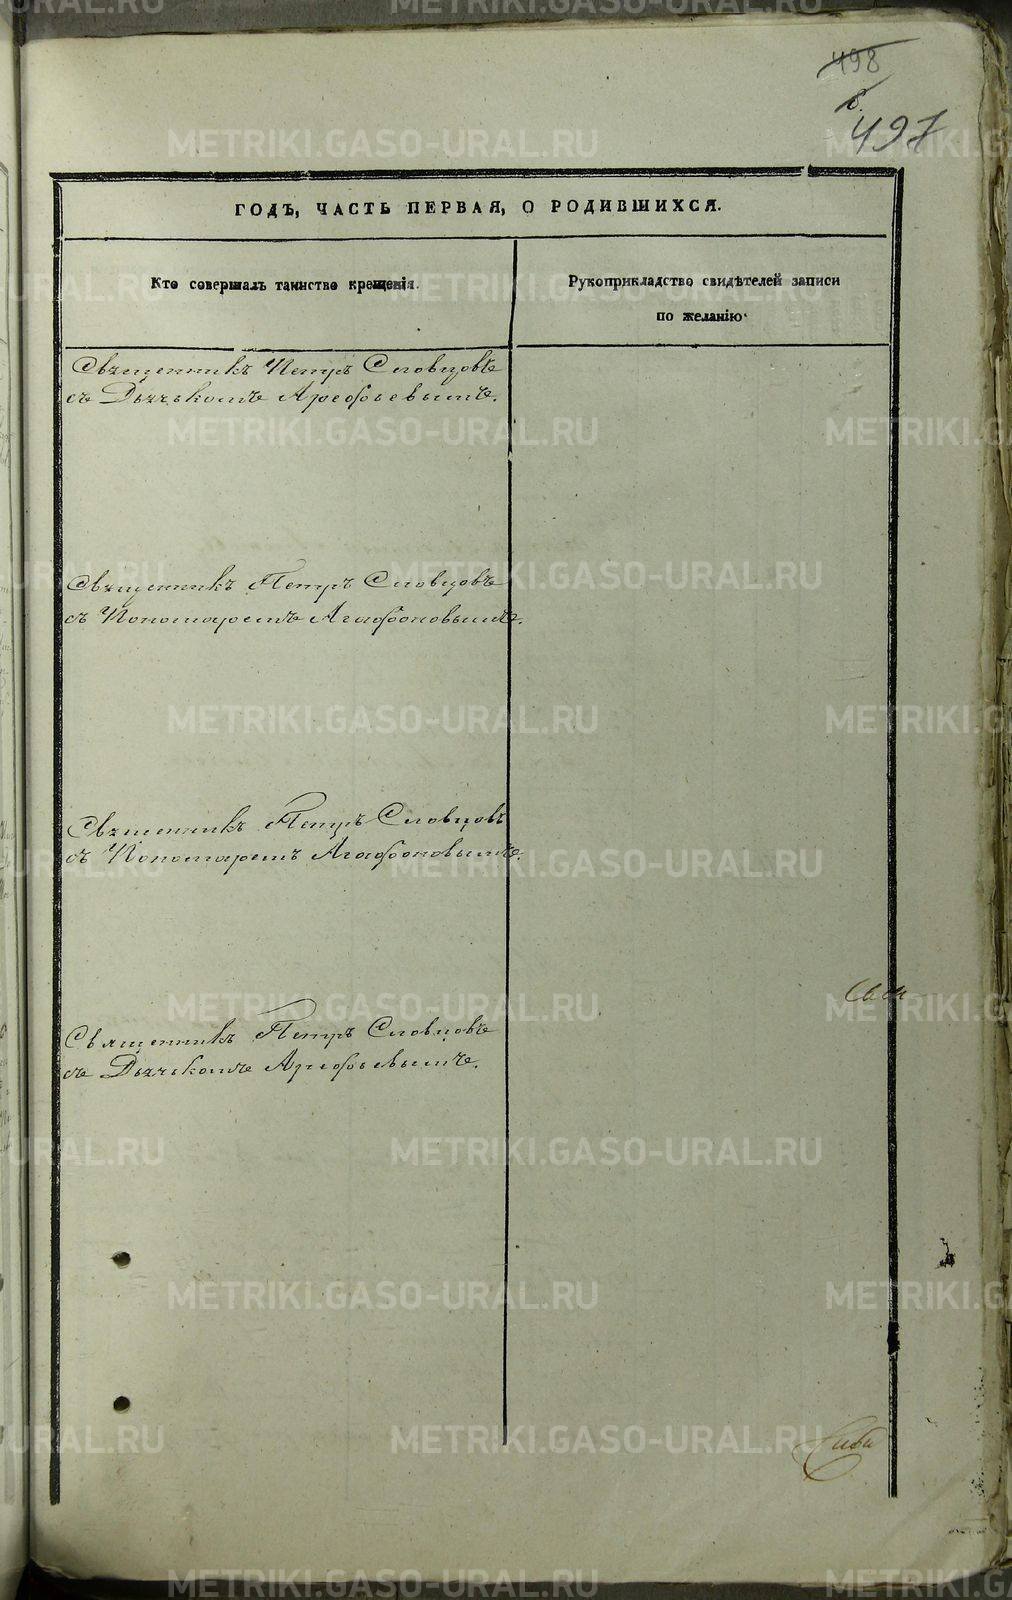 498
497
ГОДЪ, ЧАСТЬ ПЕРВАЯ, О РОДИВШИХСЯ.
Кто совершалъ таинство крещенія.
Рукоприкладство свидѣтелей записи
по желанію.
Священникъ Петръ Словцовъ
съ Дьячькомъ Арефьевымъ.
Священникъ Петръ Словцовъ
съ Пономаремъ Агафоновымъ.
Священникъ Петръ Словцовъ
съ Пономаремъ Агафоновымъ.
Священникъ Петръ Словцовъ
съ Дьячькомъ Арефьевымъ.
METRIKI.GASO-URAL.RU